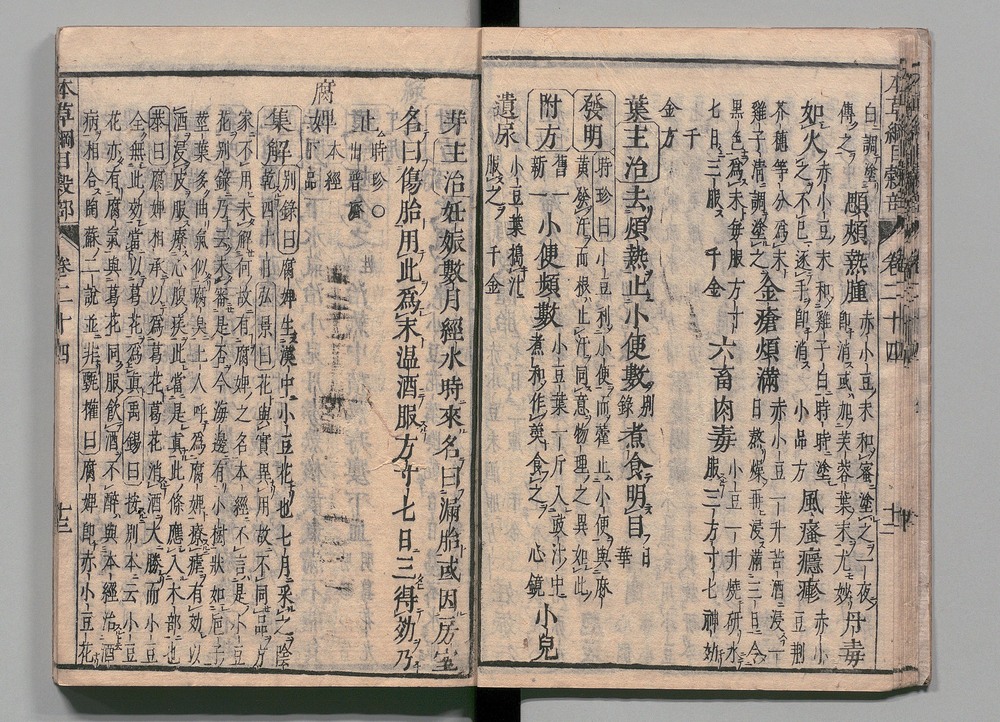 本草綱目穀部 卷二十四 十二
白調塗
傳之 腮頰熱腫 赤小豆末和蜜塗之一夜
即消或加芙蓉葉末尤妙 丹毒
如火 赤小豆末和雞子白時時塗
之不已逐手即消 小品方 風瘙癮疹 赤小豆荆
芥穗等分爲末
雞子清調塗之 金瘡煩滿 赤小豆一升苦酒浸一
日熬燥再浸滿三日令
黑色爲末每服方寸
七日三服 千金 六畜肉毒 小豆一升燒研水
服三方寸七 神妙
千
金方
葉主治去煩熱止小便數 別錄 煮食明目 日華
發明 時珍曰小豆利小便而藿止小便與麻
黃發汗而根止汗同意物理之異如此
附方 舊一新 小便頻數 小豆葉一斤入豉汁中
煮和作羹食之 心鏡 小兒
遺尿 小豆葉搗汁
服之 千金
芽主治妊娠數月經水時來名曰漏胎或因房室
名曰傷胎用此爲末温酒服方寸七日三得効乃
止 時珍○出普濟
腐婢 本經下品
集解 別錄曰腐婢生漢中小豆花也七月采之陰
乾四十日 弘景曰花與實異用故不同品方
家不用未解何故有腐婢之名本經不言是小豆
花別錄乃云未審是本今海邊有小樹狀如巵子
莖葉多曲氣似腐臭土人呼爲腐婢療瘧有効以
酒浸皮服療心腹疾此當是真此條應入木部也
恭曰腐婢相承以爲葛花葛花消酒大勝而小豆
全無此効當以葛爲真 禹錫曰按別本云小豆
花亦有腐氣與葛花同服飲酒不醉與本經治酒
病相合陶蘇二說並非 甄權曰腐婢即赤小豆花
本草綱目穀部 卷二十四 十三